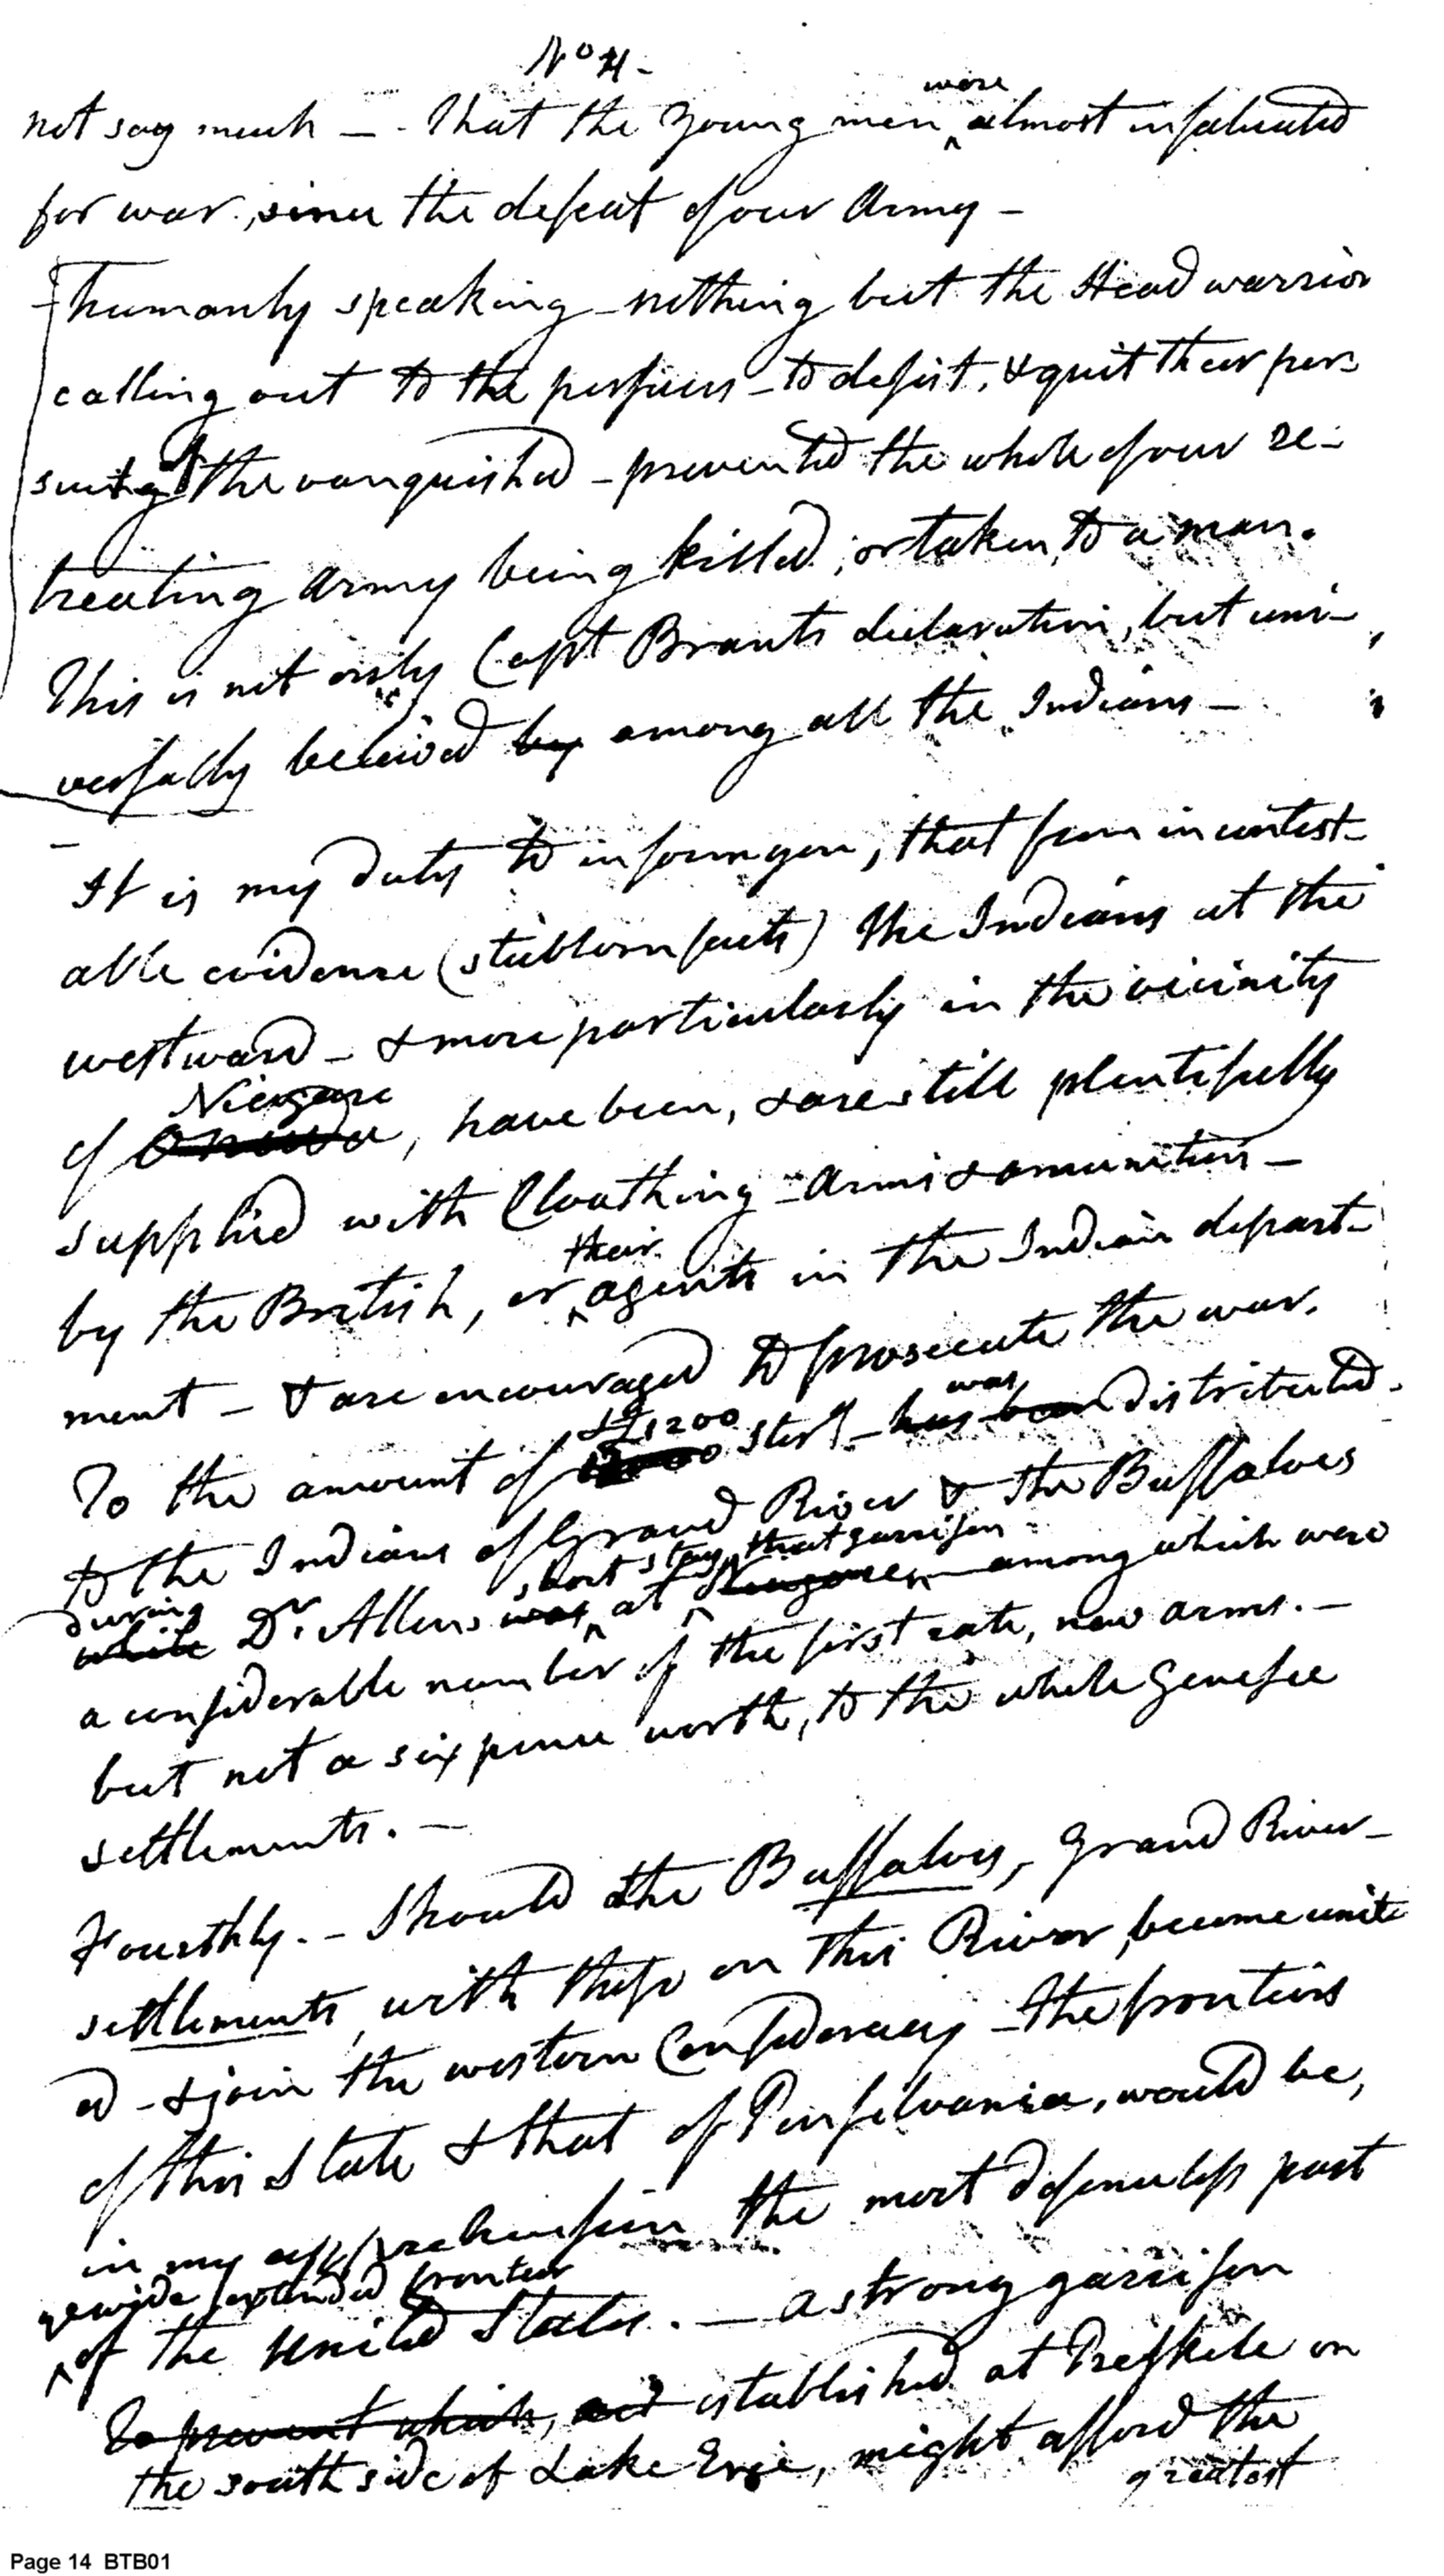 No 4-
not say much - . That the young men were almost infatuated
for war, since the defeat of our Army -
humanly speaking - nothing but the Head warrior
calling out to the persuers - to desist, & quit their per-
suing the vanquished - prevented the whole of our re-
treating army being killed, or taken, to a man.
This is not only Capt Brants declaration, but uni-
versally believed by among all the Indians -
It is my duty to inform you, that from incontest-
able evidence (stubborn facts) the Indians at the
westward - & more particularly in the vicinity
Niegara
of Oneida, have been, & are still plentifully
supplied with Cloathing - arms & amunition -
by the British, or their agents in the Indian depart-
ment - & are encouraged to prosecute the war.
£1200 was
To the amount of sterg - has been distributed.
to the Indians of Grand River & the Buffaloes
during short stay that garrison
while Dr. Allens was at Niagara - among which were
a considerable number of the first rate, new arms. -
but not a six pence worth, to the whole Genesee
settlements. -
Fourthly. - Should the Buffaloes, Grand River -
settlements, with those on this River, become unit
ed - & join the western Confederacy - the frontiers
of this State & that of Pensilvania, would be,
in my apprehension the most defenceless part
ye wide extended frontier
of the United States. - a strong garrison
To prevent which, established at Preskile on
the south side of Lake Erie, might afford the
greatest
Page 14 BTB01